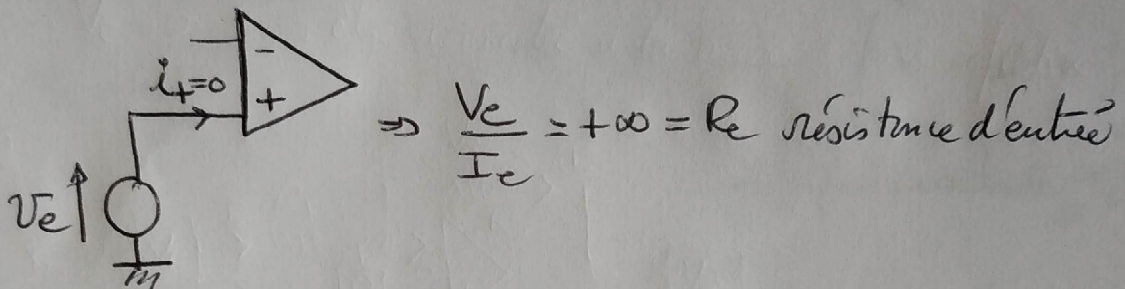 -
i₊=0
+
⇒ Ve/Ie = +∞ = Re résistance d'entrée
Ve
m